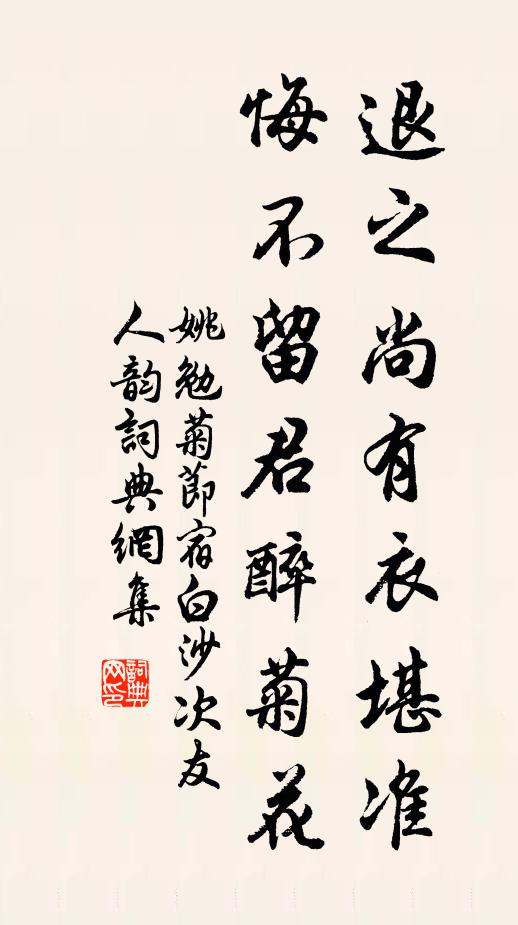 退之尚有衣堪准
悔不留君醉菊花
姚勉菊節宿白沙次友
人韵詞典網集
詞典网印